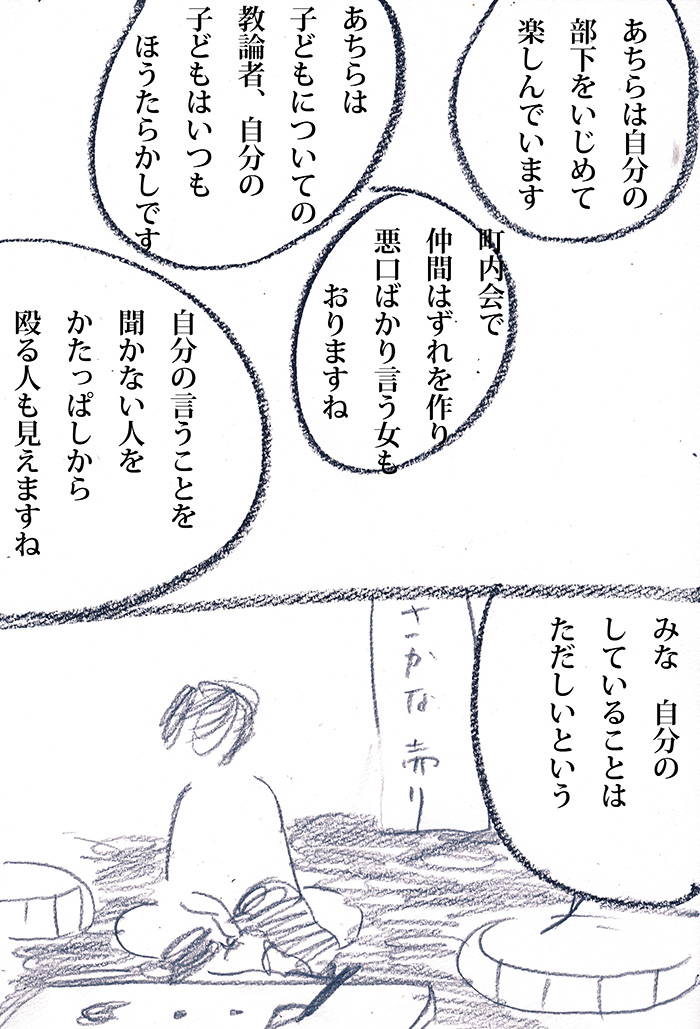 あちらは自分の
部下をいじめて
楽しんでいます
あちらは
子どもについての
教論者、自分の
子どもはいつも
ほうたらかしです
町内会で
仲間はずれを作り
悪口ばかり言う女も
おりますね
自分の言うことを
聞かない人を
かたっぱしから
殴る人も見えますね
みな　自分の
していることは
ただしいという
さかな売り